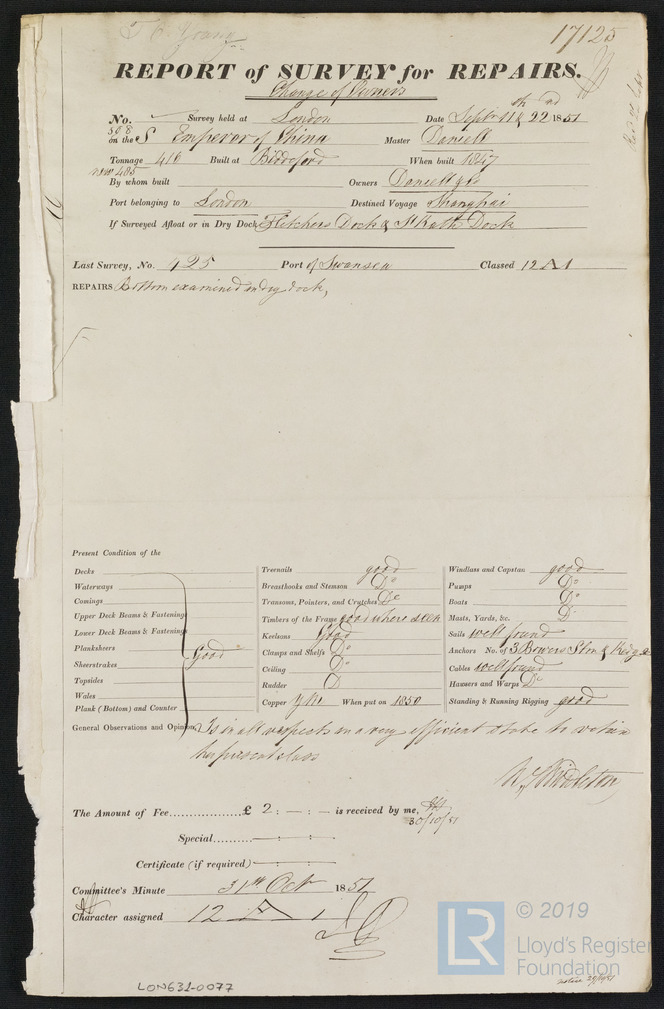 T. C. Young
17125
REPORT of SURVEY for REPAIRS.
Change of Owners
No. Survey held at London Date Septr 11th & 22nd 1851
508
on the S Emperor of China Master Daniell
Tonnage 416 Built at Biddeford When built 1847
new 485
By whom built Owners Daniell &
Port belonging to London Destined Voyage Shanghai
If Surveyed Afloat or in Dry Dock Fletchers Dock & St Kath Dock
Last Survey, No. 425 Port of Swansea Classed 12 A 1
REPAIRS Bottom examined in dry dock,
Present Condition of the
Decks
Waterways
Comings
Upper Deck Beams & Fastenings
Lower Deck Beams & Fastenings
Planksheers
Sheerstrakes
Topsides
Wales
Plank (Bottom) and Counter
Good
Treenails good
Breasthooks and Stemson Do
Transoms, Pointers, and Crutches Do
Timbers of the Frame good where seen
Keelsons Good
Clamps and Shelfs Do
Ceiling Do
Rudder D
Copper YM When put on 1850
Windlass and Capstan good
Pumps Do
Boats Do
Masts, Yards, &c. Do
Sails well found
Anchors No. of 3 Bowers Strm & Kedge
Cables well found
Hawsers and Warps Do
Standing & Running Rigging good
General Observations and Opinion, Is in all respects in a very efficient state to retain
her present class
W. Middleton
The Amount of Fee.................. £ 2 : — : — is received by me,
30/10/51
Special..........
Certificate (if required)
Committee's Minute 31st Oct 1851
Character assigned 12 A 1
LR © 2019
Lloyd's Register
Foundation
LON631-0077